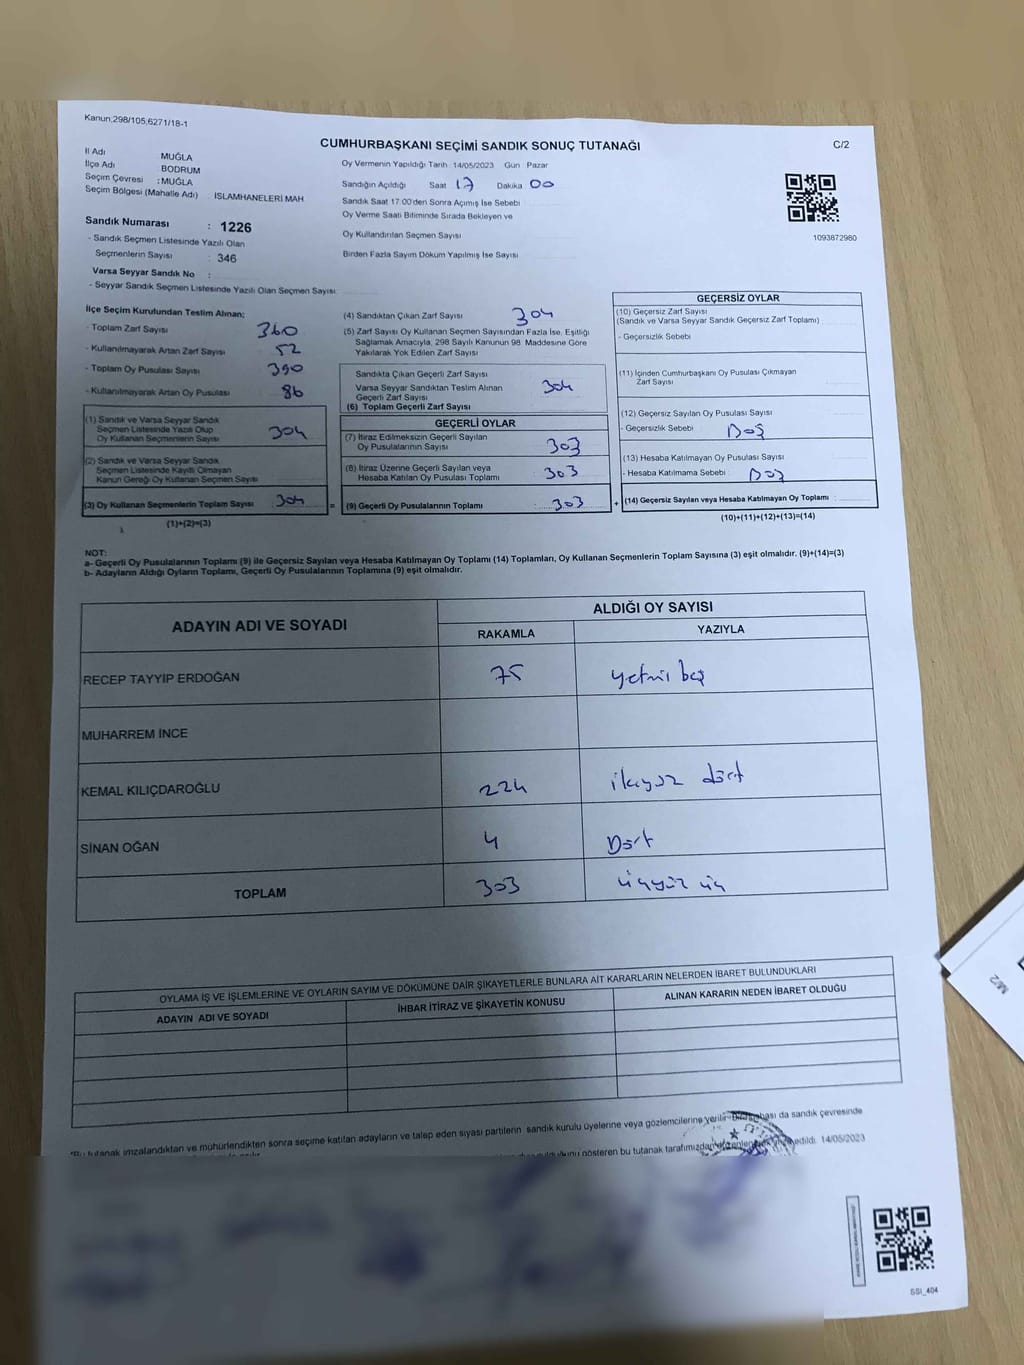 Kanun;298/105,6271/18-1
CUMHURBAŞKANI SEÇİMİ SANDIK SONUÇ TUTANAĞI
C/2
İl Adı MUĞLA
İlçe Adı BODRUM
Seçim Çevresi : MUĞLA
Seçim Bölgesi (Mahalle Adı) : ISLAMHANELERİ MAH
Sandık Numarası : 1226
- Sandık Seçmen Listesinde Yazılı Olan
Seçmenlerin Sayısı : 346
Varsa Seyyar Sandık No :
- Seyyar Sandık Seçmen Listesinde Yazılı Olan Seçmen Sayısı:
Oy Vermenin Yapıldığı Tarih 14/05/2023 Gün Pazar
Sandığın Açıldığı Saat 17 Dakika 00
Sandık Saat 17:00'den Sonra Açmış İse Sebebi
Oy Verme Saati Bitiminde Sırada Bekleyen ve
Oy Kullandırılan Seçmen Sayısı
Birden Fazla Sayım Döküm Yapılmış İse Sayısı
1093872980
İlçe Seçim Kurulundan Teslim Alınan;
- Toplam Zarf Sayısı 360
- Kullanılmayarak Artan Zarf Sayısı 52
- Toplam Oy Pusulası Sayısı 390
- Kullanılmayarak Artan Oy Pusulası 86
(1) Sandık ve Varsa Seyyar Sandık
Seçmen Listesinde Yazılı Olup
Oy Kullanan Seçmenlerin Sayısı 304
(2) Sandık ve Varsa Seyyar Sandık
Seçmen Listesinde Kayıtlı Olmayan
Kanun Gereği Oy Kullanan Seçmen Sayısı
(3) Oy Kullanan Seçmenlerin Toplam Sayısı 304 =
(1)+(2)=(3)
(4) Sandıktan Çıkan Zarf Sayısı 304
(5) Zarf Sayısı Oy Kullanan Seçmen Sayısından Fazla İse, Eşitliği
Sağlamak Amacıyla, 298 Sayılı Kanunun 98. Maddesine Göre
Yakılarak Yok Edilen Zarf Sayısı
Sandıkta Çıkan Geçerli Zarf Sayısı
Varsa Seyyar Sandıktan Teslim Alınan
Geçerli Zarf Sayısı 304
(6) Toplam Geçerli Zarf Sayısı
GEÇERLİ OYLAR
(7) İtiraz Edilmeksizin Geçerli Sayılan
Oy Pusulalarının Sayısı 303
(8) İtiraz Üzerine Geçerli Sayılan veya
Hesaba Katılan Oy Pusulası Toplamı 303
(9) Geçerli Oy Pusulalarının Toplamı : 303 +
GEÇERSİZ OYLAR
(10) Geçersiz Zarf Sayısı
(Sandık ve Varsa Seyyar Sandık Geçersiz Zarf Toplamı)
- Geçersizlik Sebebi
(11) İçinden Cumhurbaşkanı Oy Pusulası Çıkmayan
Zarf Sayısı
(12) Geçersiz Sayılan Oy Pusulası Sayısı
- Geçersizlik Sebebi Boş
(13) Hesaba Katılmayan Oy Pusulası Sayısı
- Hesaba Katılmama Sebebi : Boş
(14) Geçersiz Sayılan veya Hesaba Katılmayan Oy Toplamı :
(10)+(11)+(12)+(13)=(14)
NOT:
a- Geçerli Oy Pusulalarının Toplamı (9) ile Geçersiz Sayılan veya Hesaba Katılmayan Oy Toplamı (14) Toplamları, Oy Kullanan Seçmenlerin Toplam Sayısına (3) eşit olmalıdır. (9)+(14)=(3)
b- Adayların Aldığı Oyların Toplamı, Geçerli Oy Pusulalarının Toplamına (9) eşit olmalıdır.
ADAYIN ADI VE SOYADI
ALDIĞI OY SAYISI
RAKAMLA YAZIYLA
RECEP TAYYIP ERDOĞAN 75 yetmiş beş
MUHARREM İNCE
KEMAL KILIÇDAROĞLU 224 ikiyüz dört
SİNAN OĞAN 4 Dört
TOPLAM 303 üçyüz üç
OYLAMA İŞ VE İŞLEMLERINE VE OYLARIN SAYIM VE DÖKÜMÜNE DAİR ŞİKAYETLERLE BUNLARA AİT KARARLARIN NELERDEN İBARET BULUNDUKLARI
ADAYIN ADI VE SOYADI İHBAR İTİRAZ VE ŞİKAYETİN KONUSU ALINAN KARARIN NEDEN İBARET OLDUĞU
*Bu tutanak imzalandıktan ve mühürlendikten sonra seçime katılan adayların ve talep eden siyasi partilerin sandık kurulu üyelerine veya gözlemcilerine verilir. da sandık çevresinde
gösteren bu tutanak tarafımızdan edildi. 14/05/2023
SSI_404
M/2